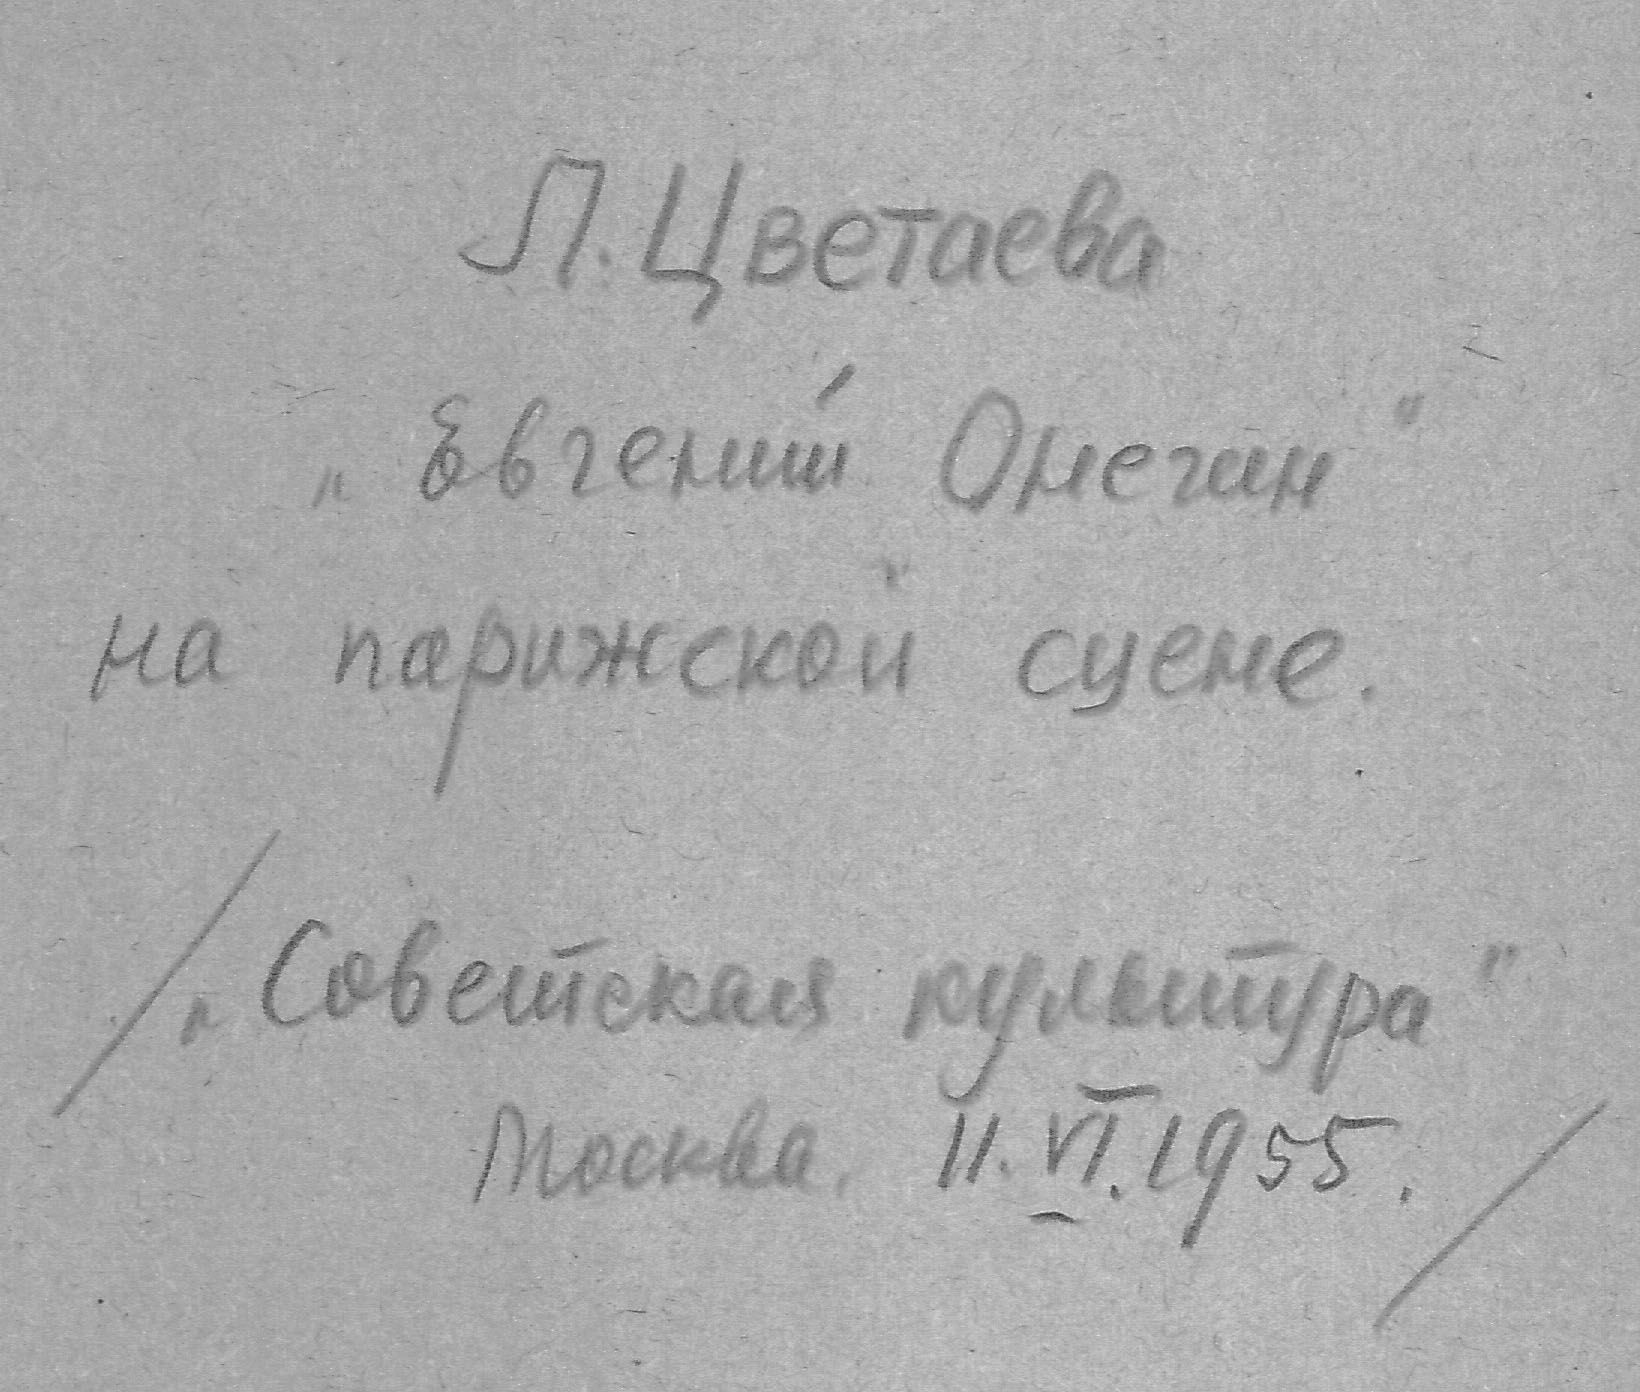 Л. Цветаева
„Евгений Онегин"
на парижской сцене.
/„Советская культура"
Москва. 11.VI.1955./